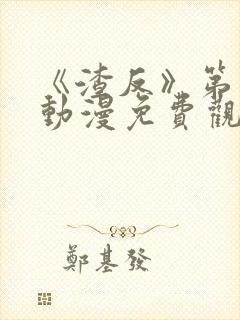 《渣反》第
動漫免費觀
鄭基發